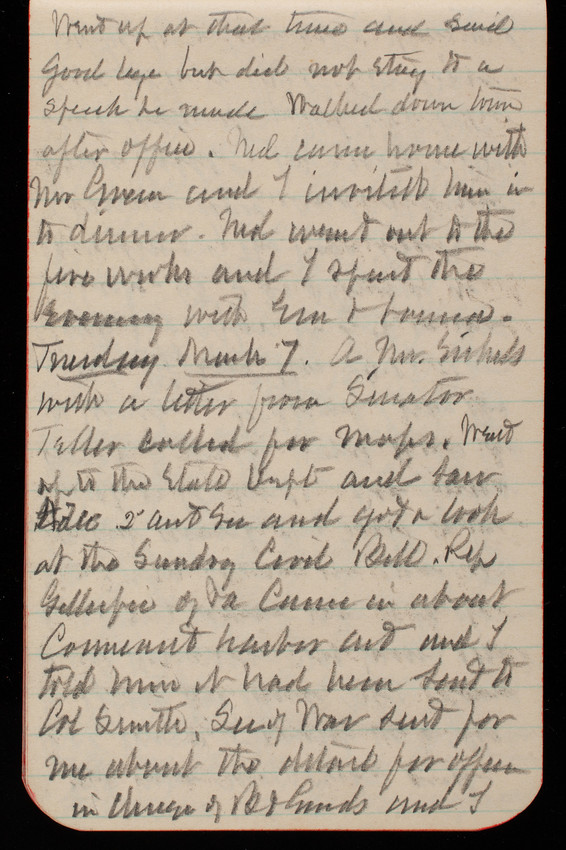 Went up at that time and said
Good bye but did not stay to a
speech he made Walked down town
after office. Ned came home with
Mr Green and I invited him in
to dinner. Ned went out to the
fire works and I spent the
Evening with Em &
Tuesday March 7. A Mr.
with a letter from Senator
Teller called for maps. Went
up to the State Dept and saw
2d Ast Sec and got a look
at the Sundry Civil Bill. Rep
Gillespie of Pa Came in about
Conneaut harbor and I
told him it had been sent to
Col Smith. Sec of War sent for
me about the detail for officer
in charge of B & Grnds and I